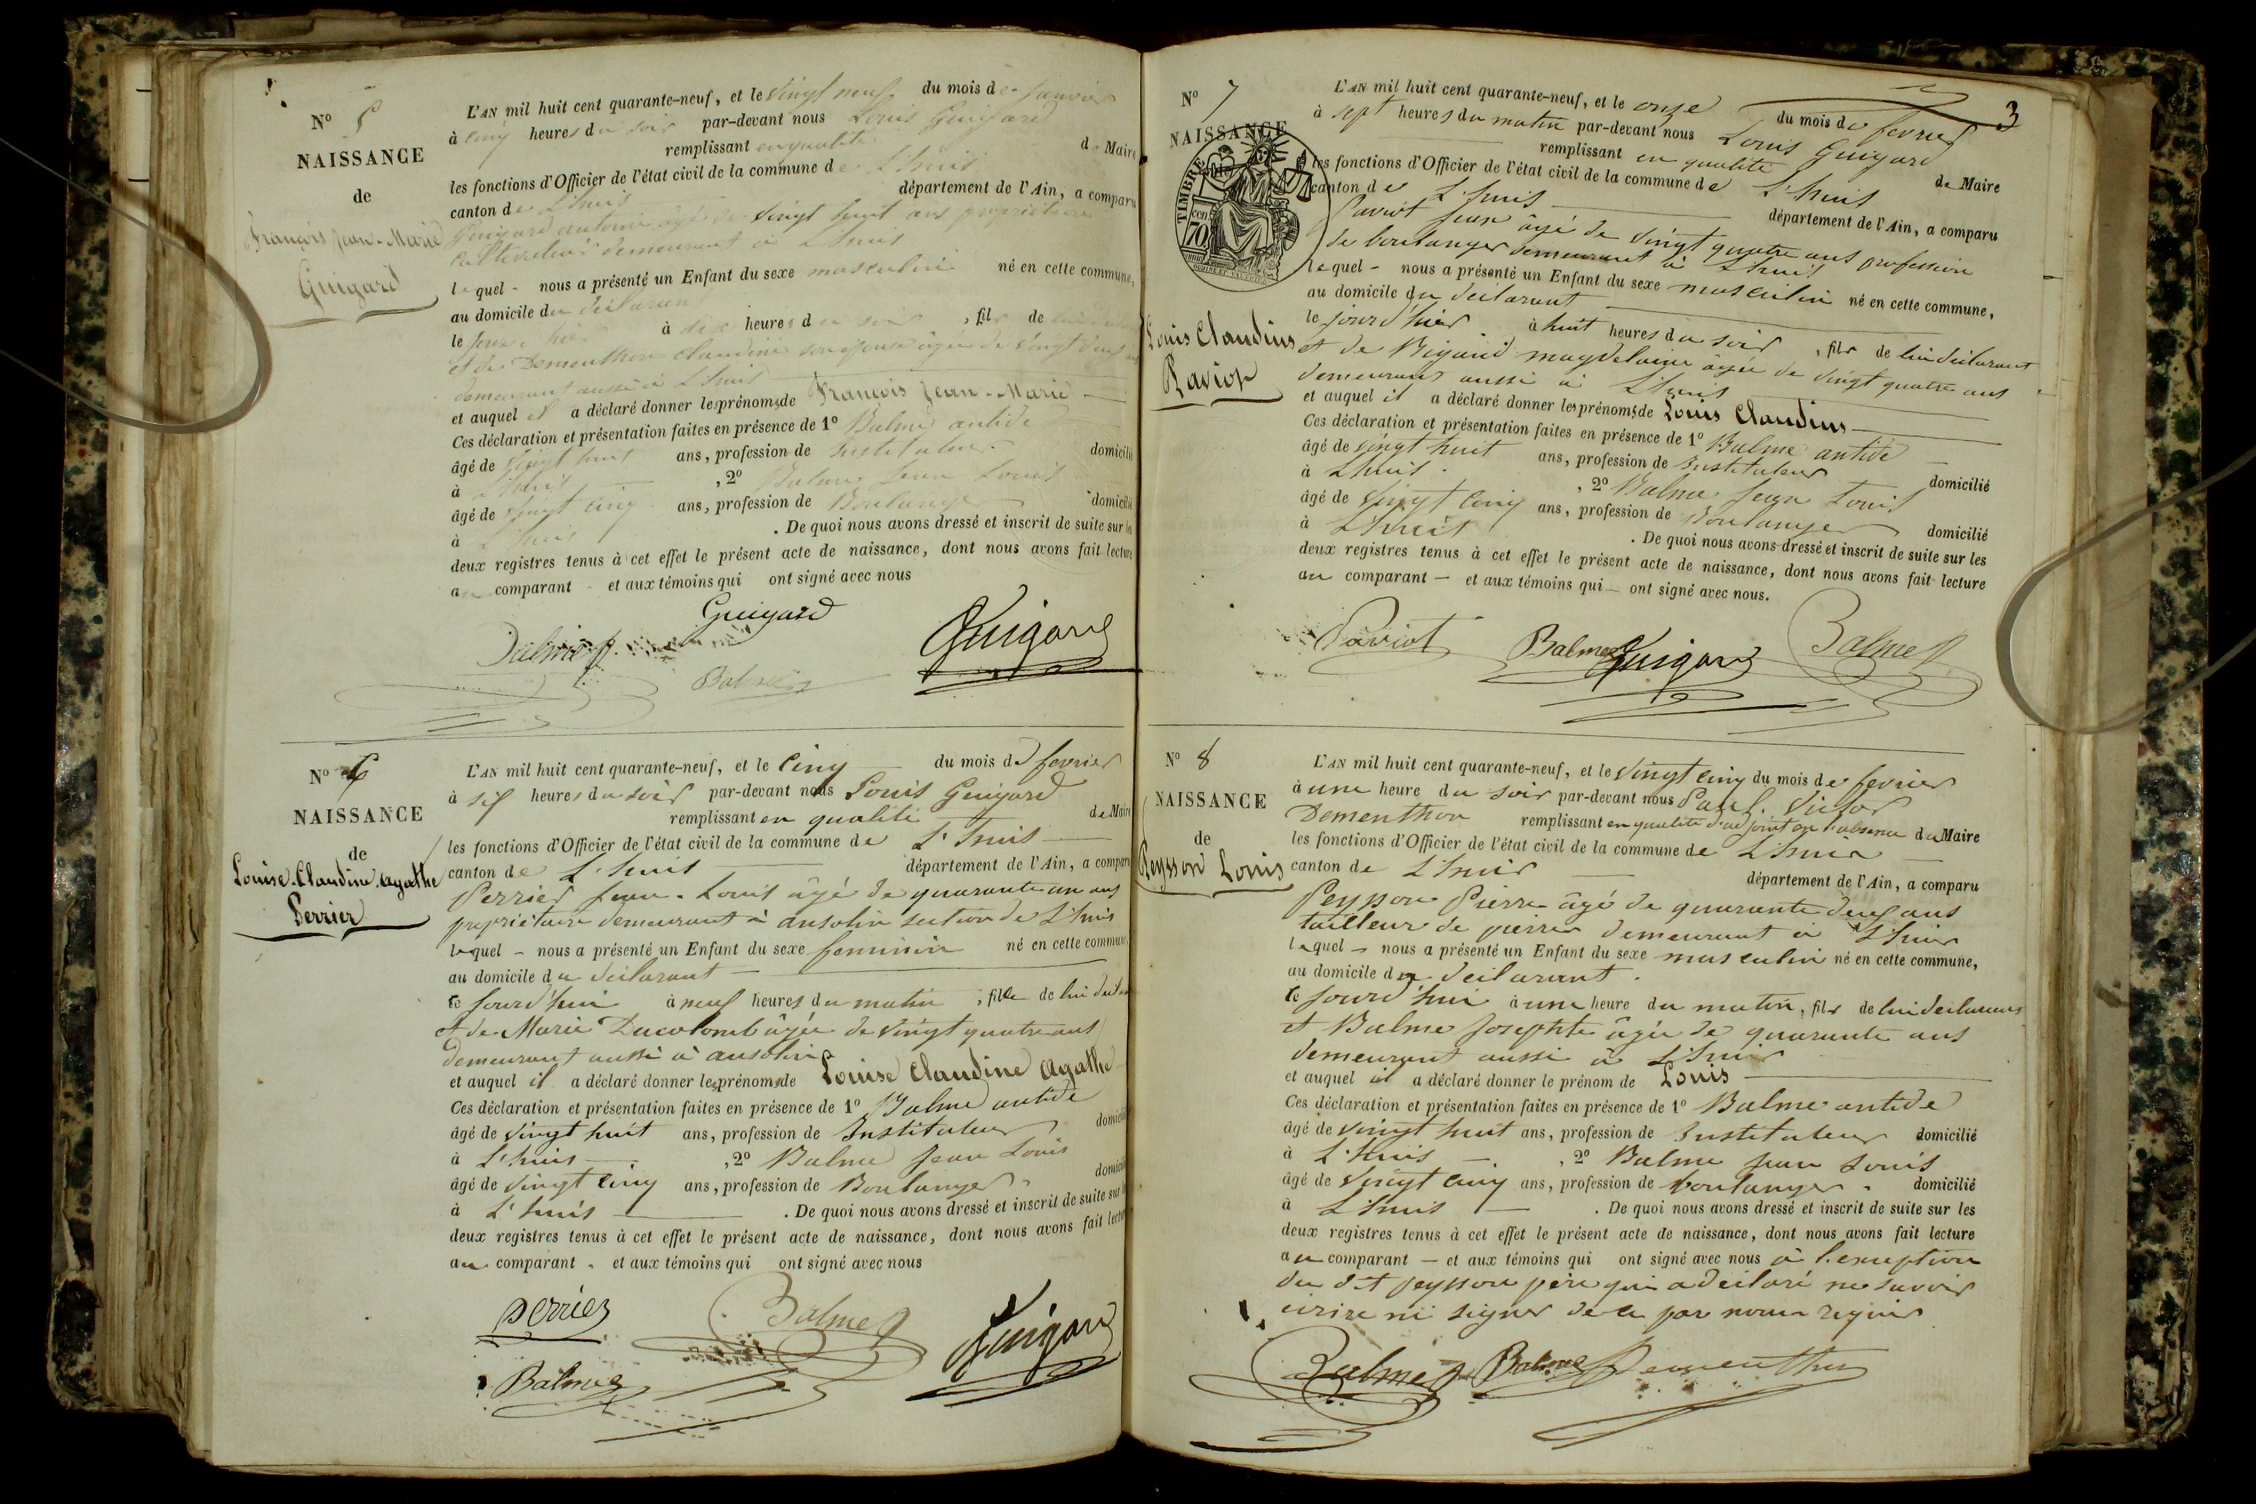 N° 5
NAISSANCE
de
François Jean-Marie
Guigard
L'AN mil huit cent quarante-neuf, et le vingt neuf du mois de janvier
à cinq heures du soir par-devant nous Louis Guigard
remplissant en qualité de Maire
les fonctions d'Officier de l'état civil de la commune de L'huis
canton de L'huis département de l'Ain, a comparu
Guigard antoine âgé de vingt huit ans propriétaire
cultivateur demeurant à L'huis
lequel - nous a présenté un Enfant du sexe masculin né en cette commune,
au domicile du déclarant
le jour d'hier à dix heures du soir, fils de lui
et de Dementhon Claudine son épouse âgée de vingt
demeurant aussi à L'huis
et auquel il a déclaré donner les prénoms de François Jean-Marie
Ces déclaration et présentation faites en présence de 1° Balme antide
âgé de vingt huit ans, profession de Instituteur domicilié
à L'huis, 2° Balme Jean Louis
âgé de vingt cinq ans, profession de Boulanger domicilié
à L'huis. De quoi nous avons dressé et inscrit de suite sur les
deux registres tenus à cet effet le présent acte de naissance, dont nous avons fait lecture
au comparant - et aux témoins qui ont signé avec nous
Guigard
Balme Guigard
Balme
N° 6
NAISSANCE
de
Louise-Claudine agathe
Perrier
L'AN mil huit cent quarante-neuf, et le cinq du mois de fevrier
à six heures du soir par-devant nous Louis Guigard
remplissant en qualité de Maire
les fonctions d'Officier de l'état civil de la commune de L'huis
canton de L'huis département de l'Ain, a comparu
Perrier Jean-Louis âgé de quarante un ans
propriétaire demeurant à ansolin section de L'huis
lequel - nous a présenté un Enfant du sexe feminin né en cette commune,
au domicile du déclarant
ce jourd'hui à neuf heures du matin, fille de lui
et de Marie Ducolomb âgée de vingt quatre ans
demeurant aussi à ansolin
et auquel il a déclaré donner les prénoms de Louise Claudine Agathe
Ces déclaration et présentation faites en présence de 1° Balme antide
âgé de vingt huit ans, profession de Instituteur domicilié
à L'huis, 2° Balme Jean Louis
âgé de vingt cinq ans, profession de Boulanger domicilié
à L'huis. De quoi nous avons dressé et inscrit de suite sur les
deux registres tenus à cet effet le présent acte de naissance, dont nous avons fait lecture
au comparant - et aux témoins qui ont signé avec nous
Perrier Balme Guigard
Balme
3
N° 7
NAISSANCE
TIMBRE
70
Louis Claudius
Paviot
L'AN mil huit cent quarante-neuf, et le onze du mois de fevrier
à sept heures du matin par-devant nous Louis Guigard
remplissant en qualité de Maire
les fonctions d'Officier de l'état civil de la commune de L'huis
canton de L'huis département de l'Ain, a comparu
Paviot Jean âgé de vingt quatre ans profession
de boulanger demeurant à L'huis
lequel - nous a présenté un Enfant du sexe masculin né en cette commune,
au domicile du déclarant
le jour d'hier à huit heures du soir, fils de lui déclarant
et de Bigaud magdelaine âgée de vingt quatre ans
demeurant aussi à L'huis
et auquel il a déclaré donner les prénoms de Louis Claudius
Ces déclaration et présentation faites en présence de 1° Balme antide
âgé de vingt huit ans, profession de Instituteur domicilié
à L'huis, 2° Balme Jean Louis
âgé de vingt cinq ans, profession de Boulanger domicilié
à L'huis. De quoi nous avons dressé et inscrit de suite sur les
deux registres tenus à cet effet le présent acte de naissance, dont nous avons fait lecture
au comparant - et aux témoins qui - ont signé avec nous.
Paviot Balme Guigard Balme
N° 8
NAISSANCE
de
Peysson Louis
L'AN mil huit cent quarante-neuf, et le vingt cinq du mois de fevrier
à une heure du soir par-devant nous Paul Victor
Dementhon remplissant en qualité d'adjoint en l'absence du Maire
les fonctions d'Officier de l'état civil de la commune de L'huis
canton de L'huis département de l'Ain, a comparu
Peysson Pierre âgé de quarante deux ans
tailleur de pierres demeurant à L'huis
lequel - nous a présenté un Enfant du sexe masculin né en cette commune,
au domicile du déclarant.
ce jourd'hui à une heure du matin, fils de lui déclarant
et Balme Josephte âgée de quarante ans
demeurant aussi à L'huis
et auquel il a déclaré donner le prénom de Louis
Ces déclaration et présentation faites en présence de 1° Balme antide
âgé de vingt huit ans, profession de Instituteur domicilié
à L'huis, 2° Balme Jean Louis
âgé de vingt cinq ans, profession de boulanger. domicilié
à L'huis. De quoi nous avons dressé et inscrit de suite sur les
deux registres tenus à cet effet le présent acte de naissance, dont nous avons fait lecture
au comparant - et aux témoins qui ont signé avec nous à l'exception
du dit peysson père qui a déclaré ne savoir
écrire ni signer de ce par nous requis
Balme Balme Dementhon